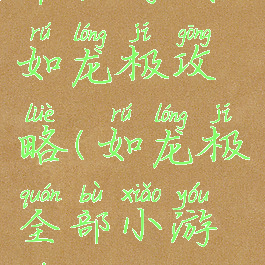 rú lóng jí gōng
如龙极攻
lüè rú lóng jí
略(如龙极
quán bù xiǎo yóu
全部小游